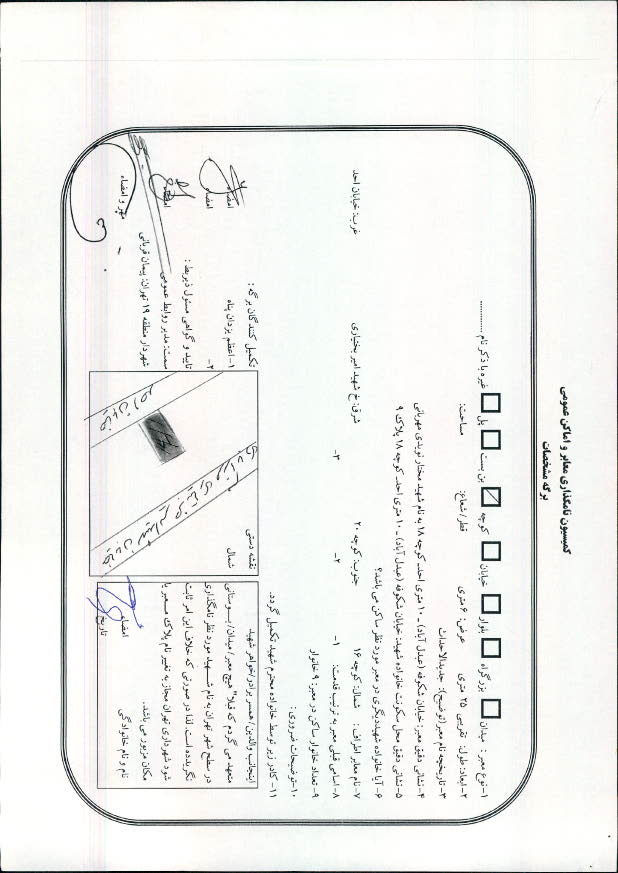 کمیسیون نامگذاری معابر و اماکن عمومی
برگه مشخصات
۱- نوع معبر : میدان بزرگراه بلوار خیابان کوچه بن بست پل غیره با ذکر نام ............
۲- ابعاد: طول: تقریبی ۲۵ متری عرض: ۶ متری قطر/شعاع: مساحت:
۳- تاریخچه نام معبر (توضیح): جدیدالاحداث
۴- نشانی دقیق معبر: خیابان شکوفه (عبدل آباد) - ۱۰ متری احد- کوچه ۱۸ به نام شهید مختار نویدی مهربانی
۵- نشانی دقیق محل سکونت خانواده شهید: خیابان شکوفه (عبدل آباد) - ۱۰ متری احد- کوچه ۱۸ پلاک ۹
۶- آیا خانواده شهید دیگری در معبر مورد نظر ساکن می باشد؟
۷- نام معابر اطراف : شمال: کوچه ۱۶ جنوب: کوچه ۲۰ شرق: خ شهید امیر بختیاری غرب: خیابان احد
۸- اسامی قبلی معبر به ترتیب قدمت: ۱- ۲- ۳-
۹- تعداد خانوار ساکن در معبر: ۹ خانوار
۱۰- توضیحات ضروری :
۱۱- کادر زیر توسط خانواده محترم شهید تکمیل گردد.
اینجانب والدین/ همسر/ برادر/ خواهر شهید
متعهد می گردم که قبلا" هیچ معبر/ میدان/ بوستانی
در سطح شهر تهران به نام شهید مورد نظر نامگذاری
نگردیده است. لذا در صورتی که خلاف این امر ثابت
شود شهرداری تهران مجاز به تغییر نام پلاک معبر یا
مکان مزبور می باشد.
نام و نام خانوادگی
امضاء
تاریخ
نقشه دستی
شمال
خیابان احد
تکمیل کنندگان برگه :
۱- اعظم یزدان پناه امضاء
۲- امضاء
تایید و گواهی مسئول ذیربط :
سمت: مدیر روابط عمومی امضاء
شهردار منطقه ۱۹ تهران: پیمان قربانی
مهر و امضاء